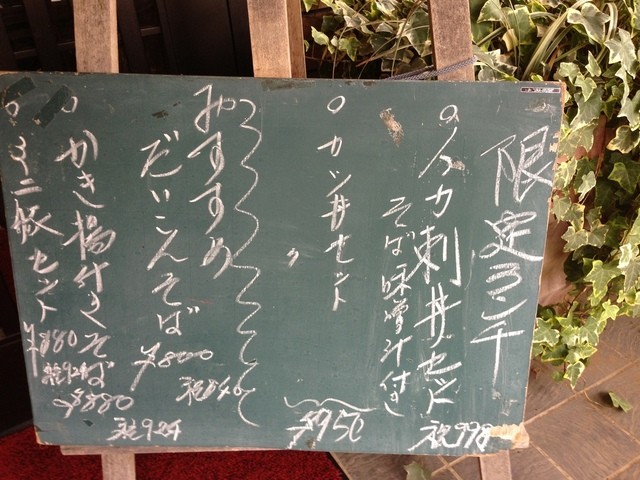 限定ランチ
○イカ刺丼セット
そば味噌汁付き
税998
○カツ丼セット
〃
¥950
おすすめ
だいこんそば
¥800
税840
○かき揚付きそば
¥880
税924
○ミニ豚セット
¥880
税924